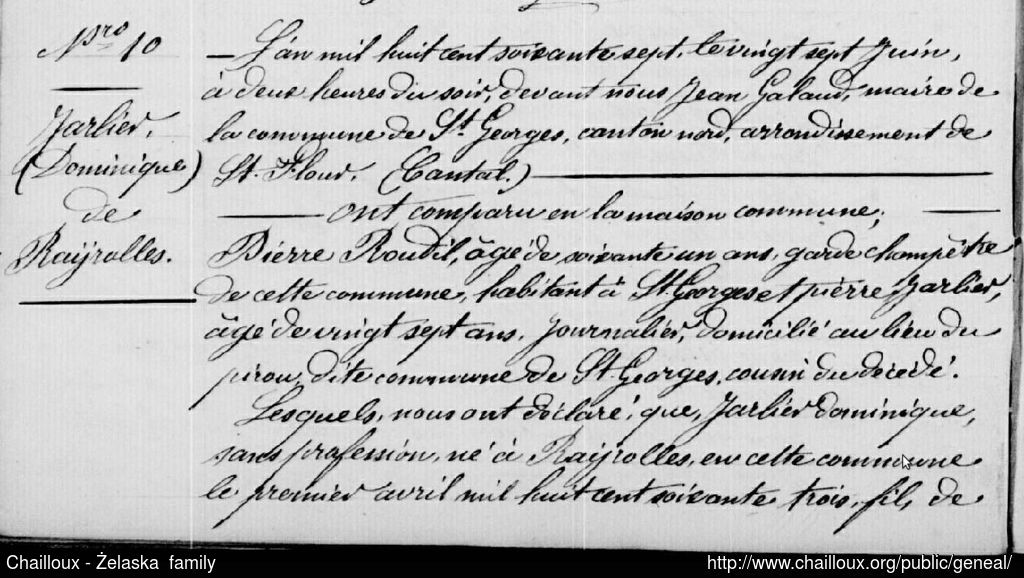 Nro 10
Jarlier.
(Dominique)
de
Raÿrolles.
L'an mil huit cent soixante sept, le vingt sept Juin,
à deux heures du soir, devant nous Jean Galaud, maire de
la commune de St. Georges, canton nord, arrondissement de
St. Flour. (Cantal.)
ont comparu en la maison commune;
Pierre Roudil, âgé de soixante un ans, garde champêtre
de cette commune, habitant à St. Georges et pierre Jarlier,
âgé de vingt sept ans, Journalier, domicilié au lieu du
pirou, dite commune de St. Georges, cousin du décédé.
Lesquels, nous ont déclaré, que, Jarlier dominique,
sans profession, né à Raÿrolles, en cette commune
le premier avril mil huit cent soixante trois, fils de
Chailloux - Żelaska family
http://www.chailloux.org/public/geneal/